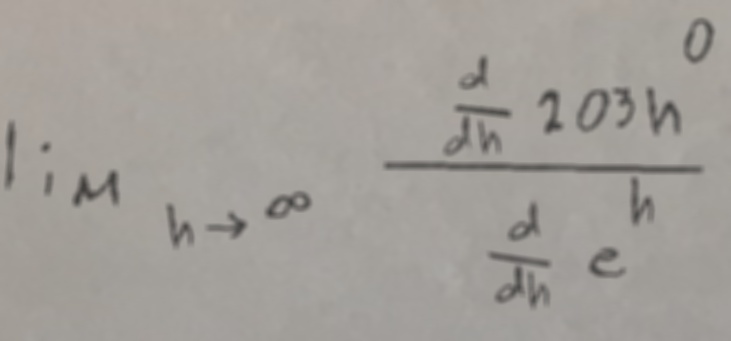 lim h→∞ \frac{\frac{d}{dh} 203h^0}{\frac{d}{dh} e^h}